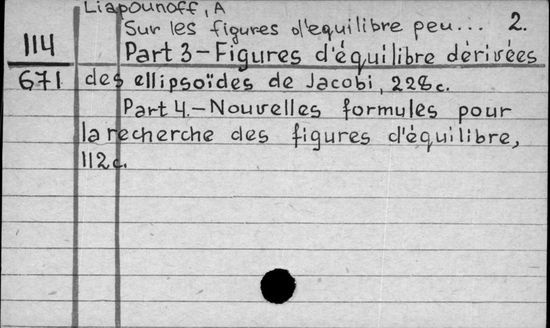 Liapounoff, A
Sur les figures d'equilibre peu... 2.
114
Part 3-Figures d'équilibre dérivées
671
des ellipsoïdes de Jacobi, 228c.
Part 4.-Nouvelles formules pour
la recherche des figures d'équilibre,
112c.